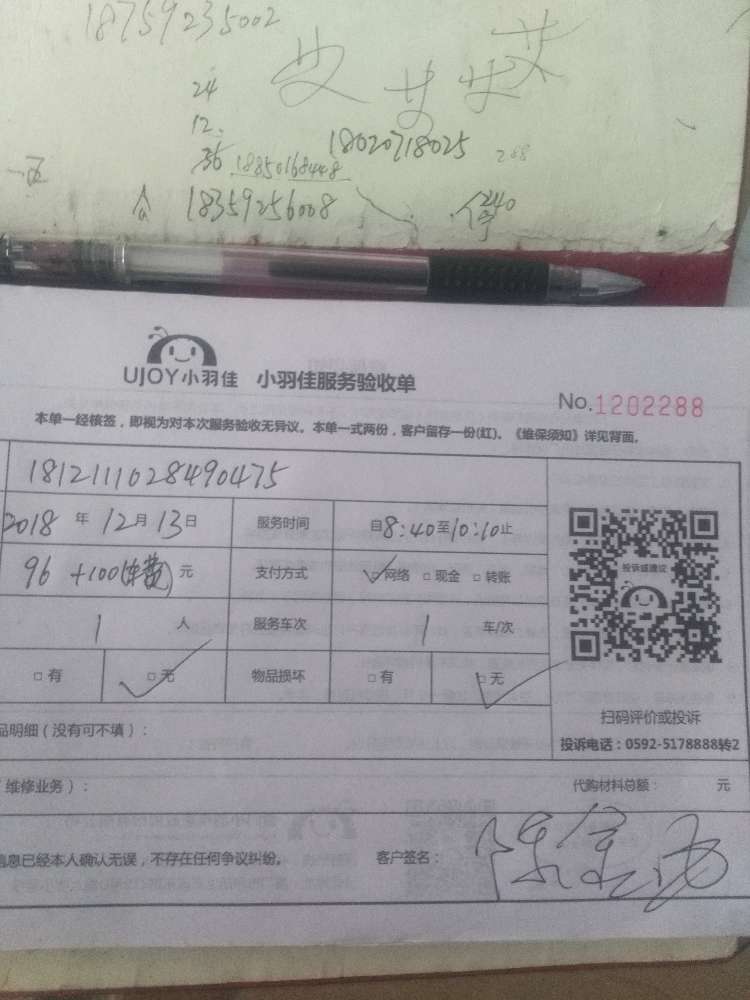 18759235002
艾
24
12.
18020718025
288
36
18850168448
一五
18359256008
240
停
UJOY小羽佳 小羽佳服务验收单
No.1202288
本单一经核签，即视为对本次服务验收无异议。本单一式两份，客户留存一份(红)。《维保须知》详见背面。
1812111028490475
2018 年 12月 13日 服务时间 自8:40至10:10止
96 +100(车费) 元 支付方式 □网络 □现金 □转账
投诉或建议
1 人 服务车次 1 车/次
□有 □无 物品损坏 □有 □无
扫码评价或投诉
品明细（没有可不填）：
投诉电话：0592-5178888转2
维修业务）：
代购材料总额： 元
信息已经本人确认无误，不存在任何争议纠纷。 客户签名：